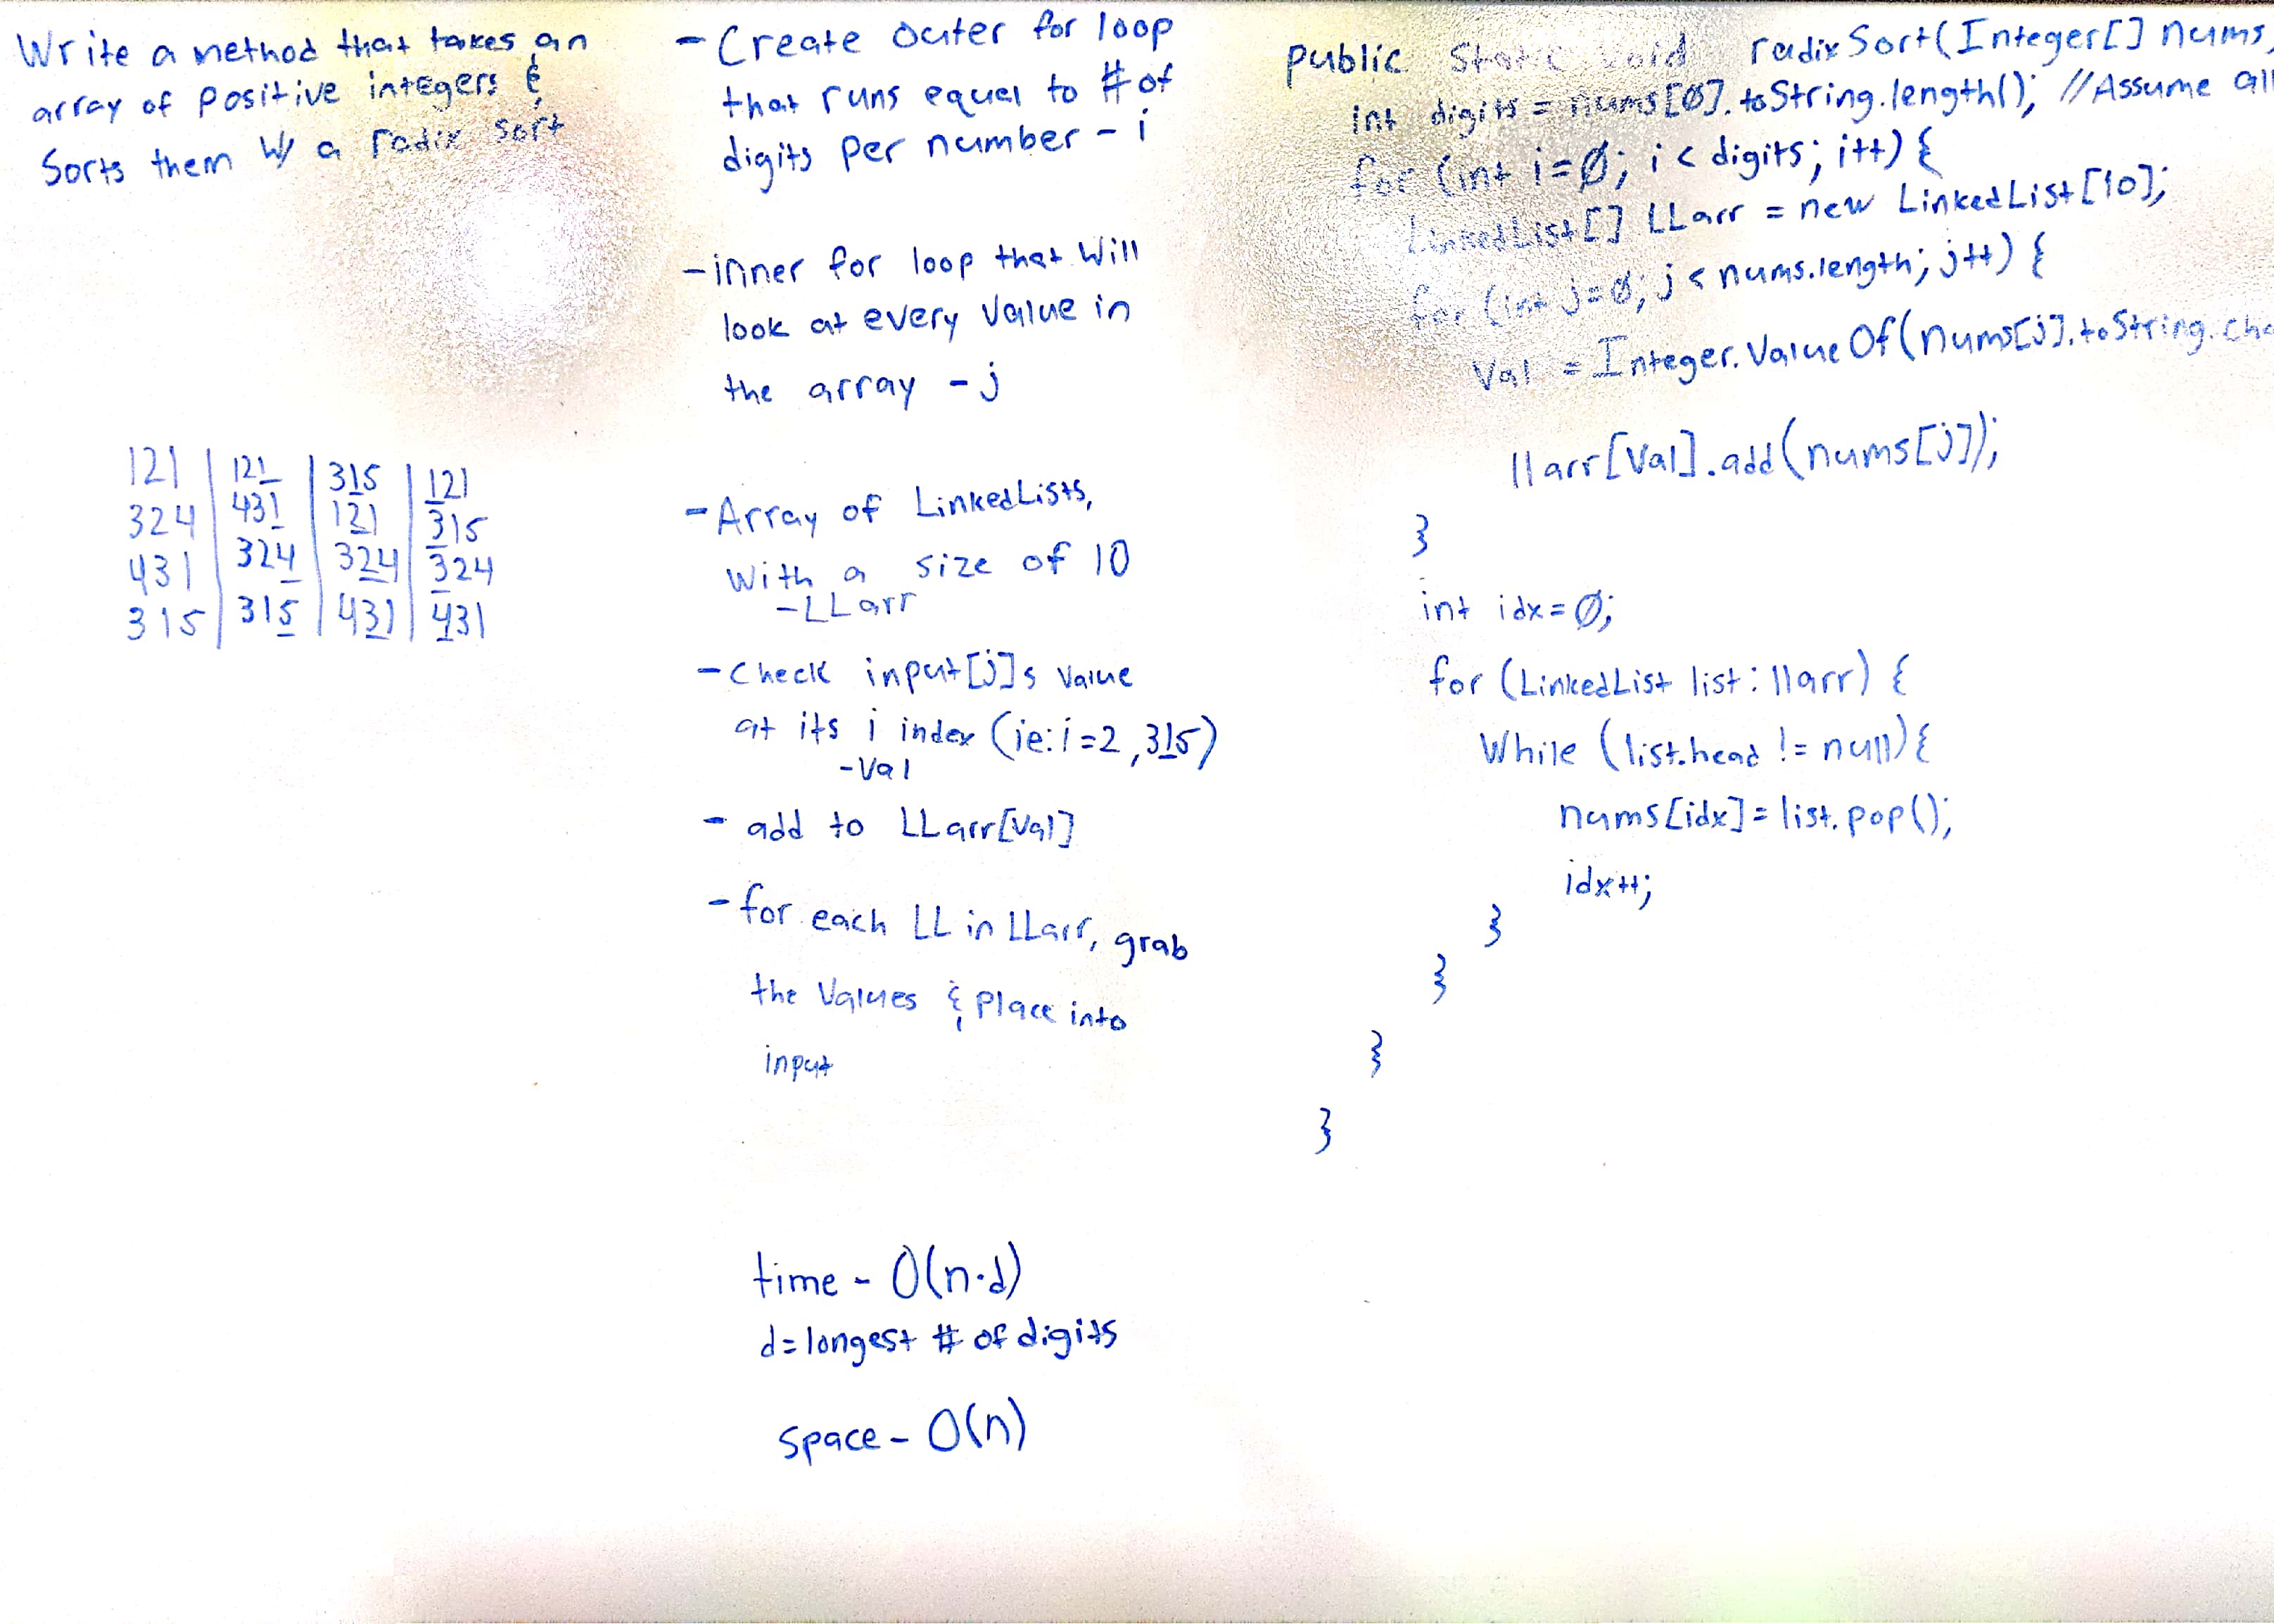 Write a method that takes an
array of positive integers &
Sorts them w/ a radix sort
121 | 121 | 315 | 121
324 | 431 | 121 | 315
431 | 324 | 324 | 324
315 | 315 | 431 | 431
- Create outer for loop
that runs equal to # of
digits per number - i
- inner for loop that will
look at every value in
the array - j
- Array of LinkedLists,
with a size of 10
- LLarr
- Check input[j]s value
at its i index (ie: i=2, 315)
- Val
- add to LLarr[Val]
- for each LL in LLarr, grab
the values & place into
input
time - O(n·d)
d = longest # of digits
space - O(n)
public static void radixSort(Integer[] nums,
int digits = nums[0].toString.length(); //Assume all
for (int i=0; i < digits; i++) {
LinkedList[] LLarr = new LinkedList[10];
for (int j=0; j < nums.length; j++) {
Val = Integer.ValueOf(nums[j].toString.cha
llarr[Val].add(nums[j]);
}
int idx = 0;
for (LinkedList list : llarr) {
While (list.head != null) {
nums[idx] = list.pop();
idx++;
}
}
}
}